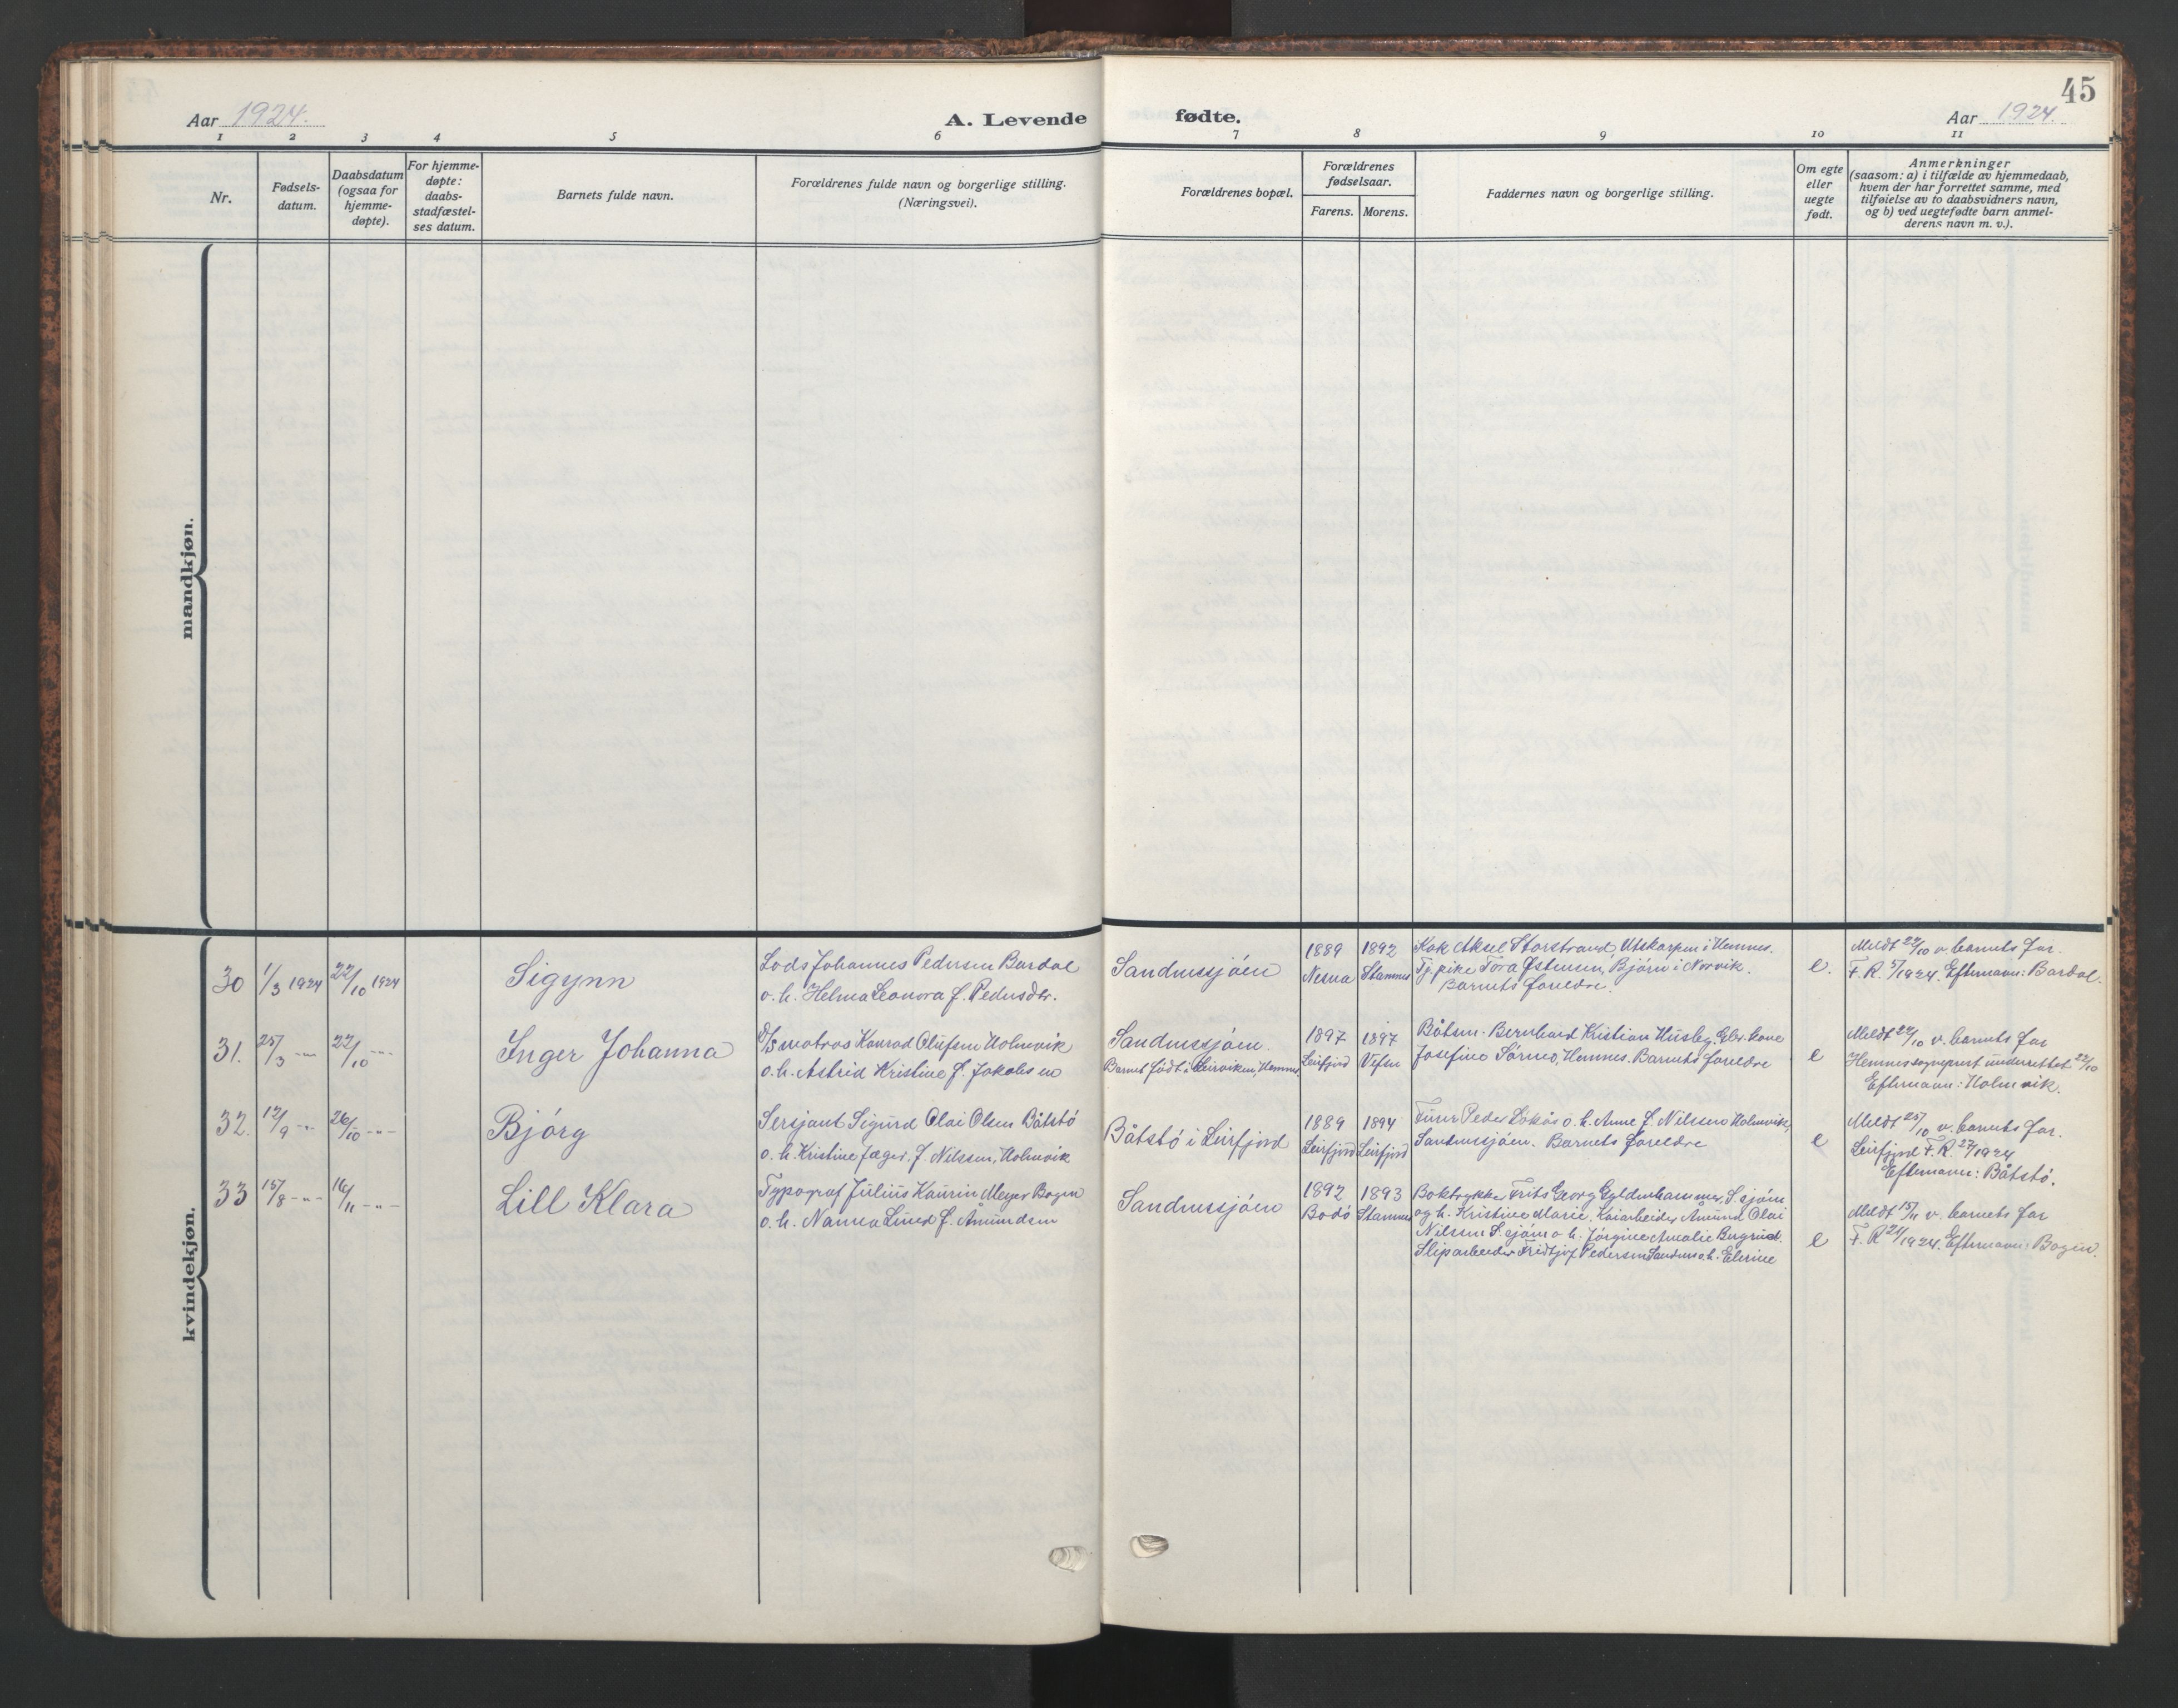 45
Aar 1924. A. Levende fødte. Aar 1924.
1 2 3 4 5 6 7 8 9 10 11
Nr.
Fødsels-
datum.
Daabsdatum
(ogsaa for
hjemme-
døpte).
For hjemme-
døpte:
daabs-
stadfæstel-
ses datum.
Barnets fulde navn.
Forældrenes fulde navn og borgerlige stilling.
(Næringsvei).
Forældrenes bopæl.
Forældrenes
fødselsaar.
Farens. Morens.
Faddernes navn og borgerlige stilling.
Om egte
eller
uegte
født.
Anmerkninger
(saasom: a) i tilfælde av hjemmedaab,
hvem der har forrettet samme, med
tilføielse av to daabsvidners navn,
og b) ved uegtefødte barn anmel-
derens navn m. v.).
mandkjøn.
kvindekjøn.
30 1/3 1924 22/10 1924
Sigynn
Lods Johannes Pedersen Bardal
o. h. Helma Leonora f. Pedersdtr.
Sandnessjøen
1889 1892
Nesna Stamnes
Kok Aksel Storstrand, Utskarpen i Hemnes.
Tj. pike Tora Østensen, Bjørn i Norvik.
Barnets foreldre.
e.
Meldt 22/10 v. barnets far.
F. R. 5/1924. Efternavn: Bardal.
31. 25/3 -"- 22/10 -"-
Inger Johanna
D/S matros Konrad Olufsen Holmvik
o. h. Astrid Kristine f. Jakobsen
Sandnessjøen.
Barnet født i Leirviken, Hemnes.
1897 1897
Leirfjord Vefsn
Båtsm. Bernhard Kristian Husby, Gbr. kone
Josefine Sørmo, Hemnes. Barnets foreldre
e
Meldt 22/10 v. barnets far
Hemnes sogneprest underrettet 22/10
Efternavn: Holmvik.
32. 12/9 -"- 26/10 -"-
Bjørg
Sersjant Sigurd Olai Olsen Båtstø
o. h. Kristine Jæger, f. Nilssen, Holmvik
Båtstø i Leirfjord
1889 1894
Leirfjord Leirfjord
Peder Løkås o. h. Anne f. Nilssen Holmvik,
Sandnessjøen. Barnets foreldre
e
Meldt 25/10 v. barnets far.
Leirfjord F. R. 27/1924
Efternavn: Båtstø.
33 15/8 -"- 16/11 -"-
Lill Klara
Typograf Julius Kaurin Meyer Bogen
o. h. Nanna Lined f. Åmundsen
Sandnessjøen
1892 1893
Bodø Stamnes
Boktrykker Frits Georg Gyldenhammer, S. sjøen
og h. Kristine Marie. Kaiarbeider Åmund Olai
Nilssen S. sjøen o. h. Jørgine Amalie Bergrud.
Sliparbeider Fridtjof Pedersen Sandnes o. h. Elerine
e
Meldt 15/11 v. barnets far
F. R 24/1924. Efternavn: Bogen.